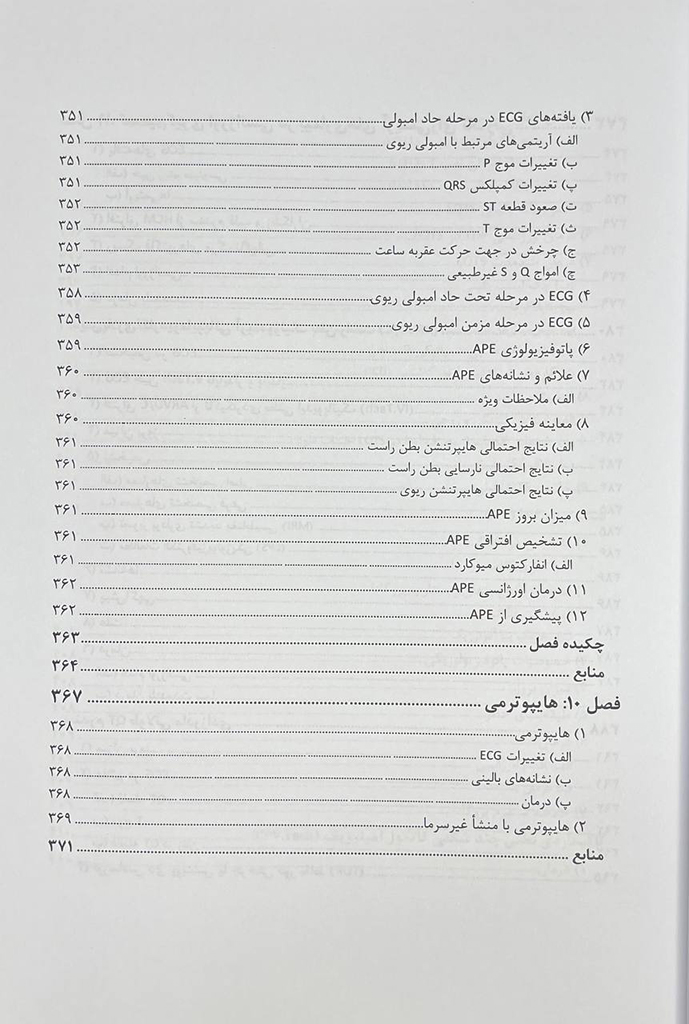 ۳) یافته‌های ECG در مرحله حاد امبولی ........ ۳۵۱
الف) آریتمی‌های مرتبط با امبولی ریوی ........ ۳۵۱
ب) تغییرات موج P ........ ۳۵۱
پ) تغییرات کمپلکس QRS ........ ۳۵۱
ت) صعود قطعه ST ........ ۳۵۲
ث) تغییرات موج T ........ ۳۵۲
ج) چرخش در جهت حرکت عقربه ساعت ........ ۳۵۲
چ) امواج Q و S غیرطبیعی ........ ۳۵۳
۴) ECG در مرحله تحت حاد امبولی ریوی ........ ۳۵۸
۵) ECG در مرحله مزمن امبولی ریوی ........ ۳۵۹
۶) پاتوفیزیولوژی APE ........ ۳۵۹
۷) علائم و نشانه‌های APE ........ ۳۶۰
الف) ملاحظات ویژه ........ ۳۶۰
۸) معاینه فیزیکی ........ ۳۶۰
الف) نتایج احتمالی هایپرتنشن بطن راست ........ ۳۶۱
ب) نتایج احتمالی نارسایی بطن راست ........ ۳۶۱
پ) نتایج احتمالی هایپرتنشن ریوی ........ ۳۶۱
۹) میزان بروز APE ........ ۳۶۱
۱۰) تشخیص افتراقی APE ........ ۳۶۱
الف) انفارکتوس میوکارد ........ ۳۶۱
۱۱) درمان اورژانسی APE ........ ۳۶۲
۱۲) پیشگیری از APE ........ ۳۶۲
چکیده فصل ........ ۳۶۳
منابع ........ ۳۶۴
فصل ۱۰: هایپوترمی ........ ۳۶۷
۱) هایپوترمی ........ ۳۶۸
الف) تغییرات ECG ........ ۳۶۸
ب) نشانه‌های بالینی ........ ۳۶۸
پ) درمان ........ ۳۶۸
۲) هایپوترمی با منشأ غیرسرما ........ ۳۶۹
منابع ........ ۳۷۱